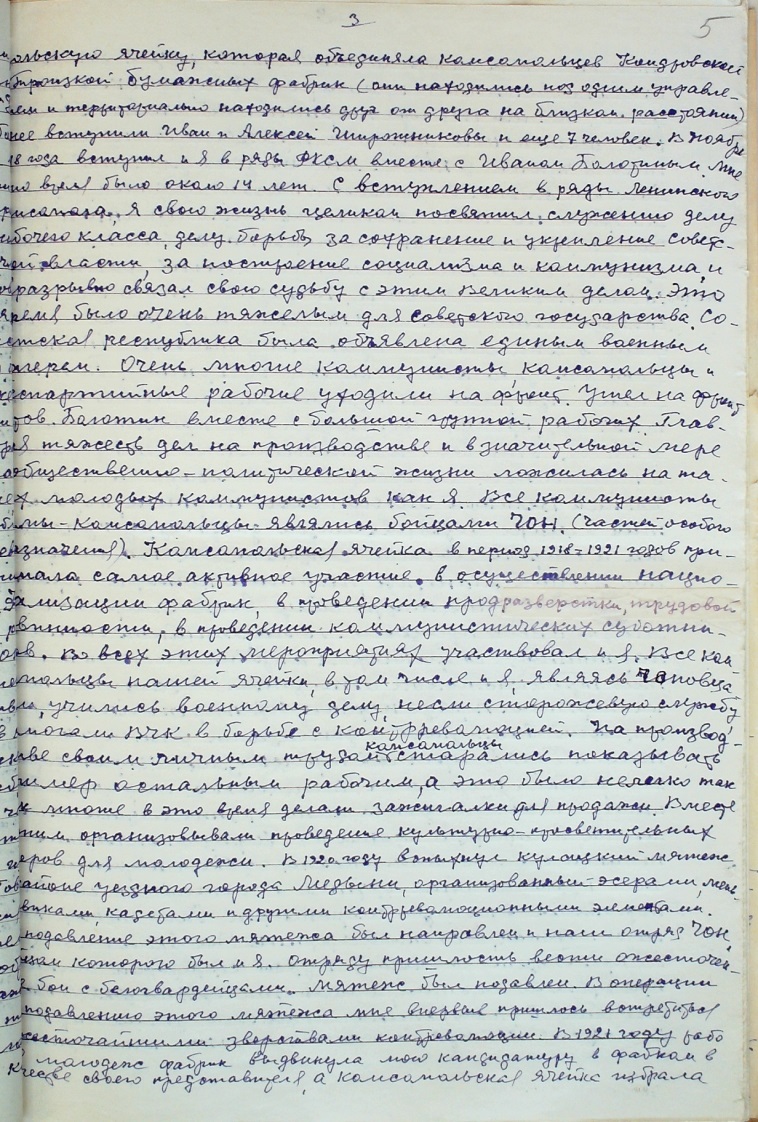 3
5
ольскую ячейку, которая объединяла комсомольцев Кондровской
Троицкой бумажных фабрик (они находились под одним управле-
нием и территориально находились друг от друга на близком расстоянии)
более вступили Иван и Алексей Широжниковы и еще 7 человек. В ноябре
18 года вступил и я в ряды РКСМ вместе с Иваном Болотиным. Мне
время было около 14 лет. С вступлением в ряды Ленинского
комсомола, я свою жизнь целиком посвятил служению делу
рабочего класса, делу борьбы за сохранение и укрепление совет-
ской власти, за построение социализма и коммунизма, и
неразрывно связал свою судьбу с этим великим делом. Это
время было очень тяжелым для советского государства. Со-
ветская республика была объявлена единым военным
лагерем. Очень многие коммунисты, комсомольцы и
беспартийные рабочие уходили на фронт. Ушел на фронт
и тов. Болотин вместе с большой группой рабочих. Глав-
ная тяжесть дел на производстве и в значительной мере
общественно-политической жизни ложилась на та-
ких молодых коммунистов как я. Все коммунисты
бамы-комсомольцы являлись бойцами ЧОН. (частей особого
назначения). Комсомольская ячейка в период 1918-1921 годов при-
нимала самое активное участие в осуществлении нацио-
нализации фабрик, в проведении продразверстки, трудовой
повинности, в проведении коммунистических субботни-
ков. Во всех этих мероприятиях участвовал и я. Все ком-
сомольцы нашей ячейки, в том числе и я, являясь чоновца-
ми, учились военному делу, несли сторожевую службу
помогали ВЧК в борьбе с контрреволюцией. На производ-
стве своим личным трудом комсомольцы старались показывать
пример остальным рабочим, а это было нелегко так
как многие в это время делали зажигалки для продажи. Вместе
с этим организовывали проведение культурно-просветительных
вечеров для молодежи. В 1920 году вспыхнул кулацкий мятеж
в районе уездного города Медыни, организованный эсерами, мень-
шевиками, кадетами и другими контрреволюционными элементами.
подавление этого мятежа был направлен и наш отряд ЧОН,
бойцом которого был и я. Отряду пришлось вести ожесточен-
ные бои с белогвардейцами. Мятеж был подавлен. В операции
по подавлению этого мятежа мне впервые пришлось встретиться
с жесточайшими зверствами контрреволюции. В 1921 году рабо
молодежь фабрик выдвинула мою кандидатуру в фабком в
качестве своего представителя, а комсомольская ячейка избрала